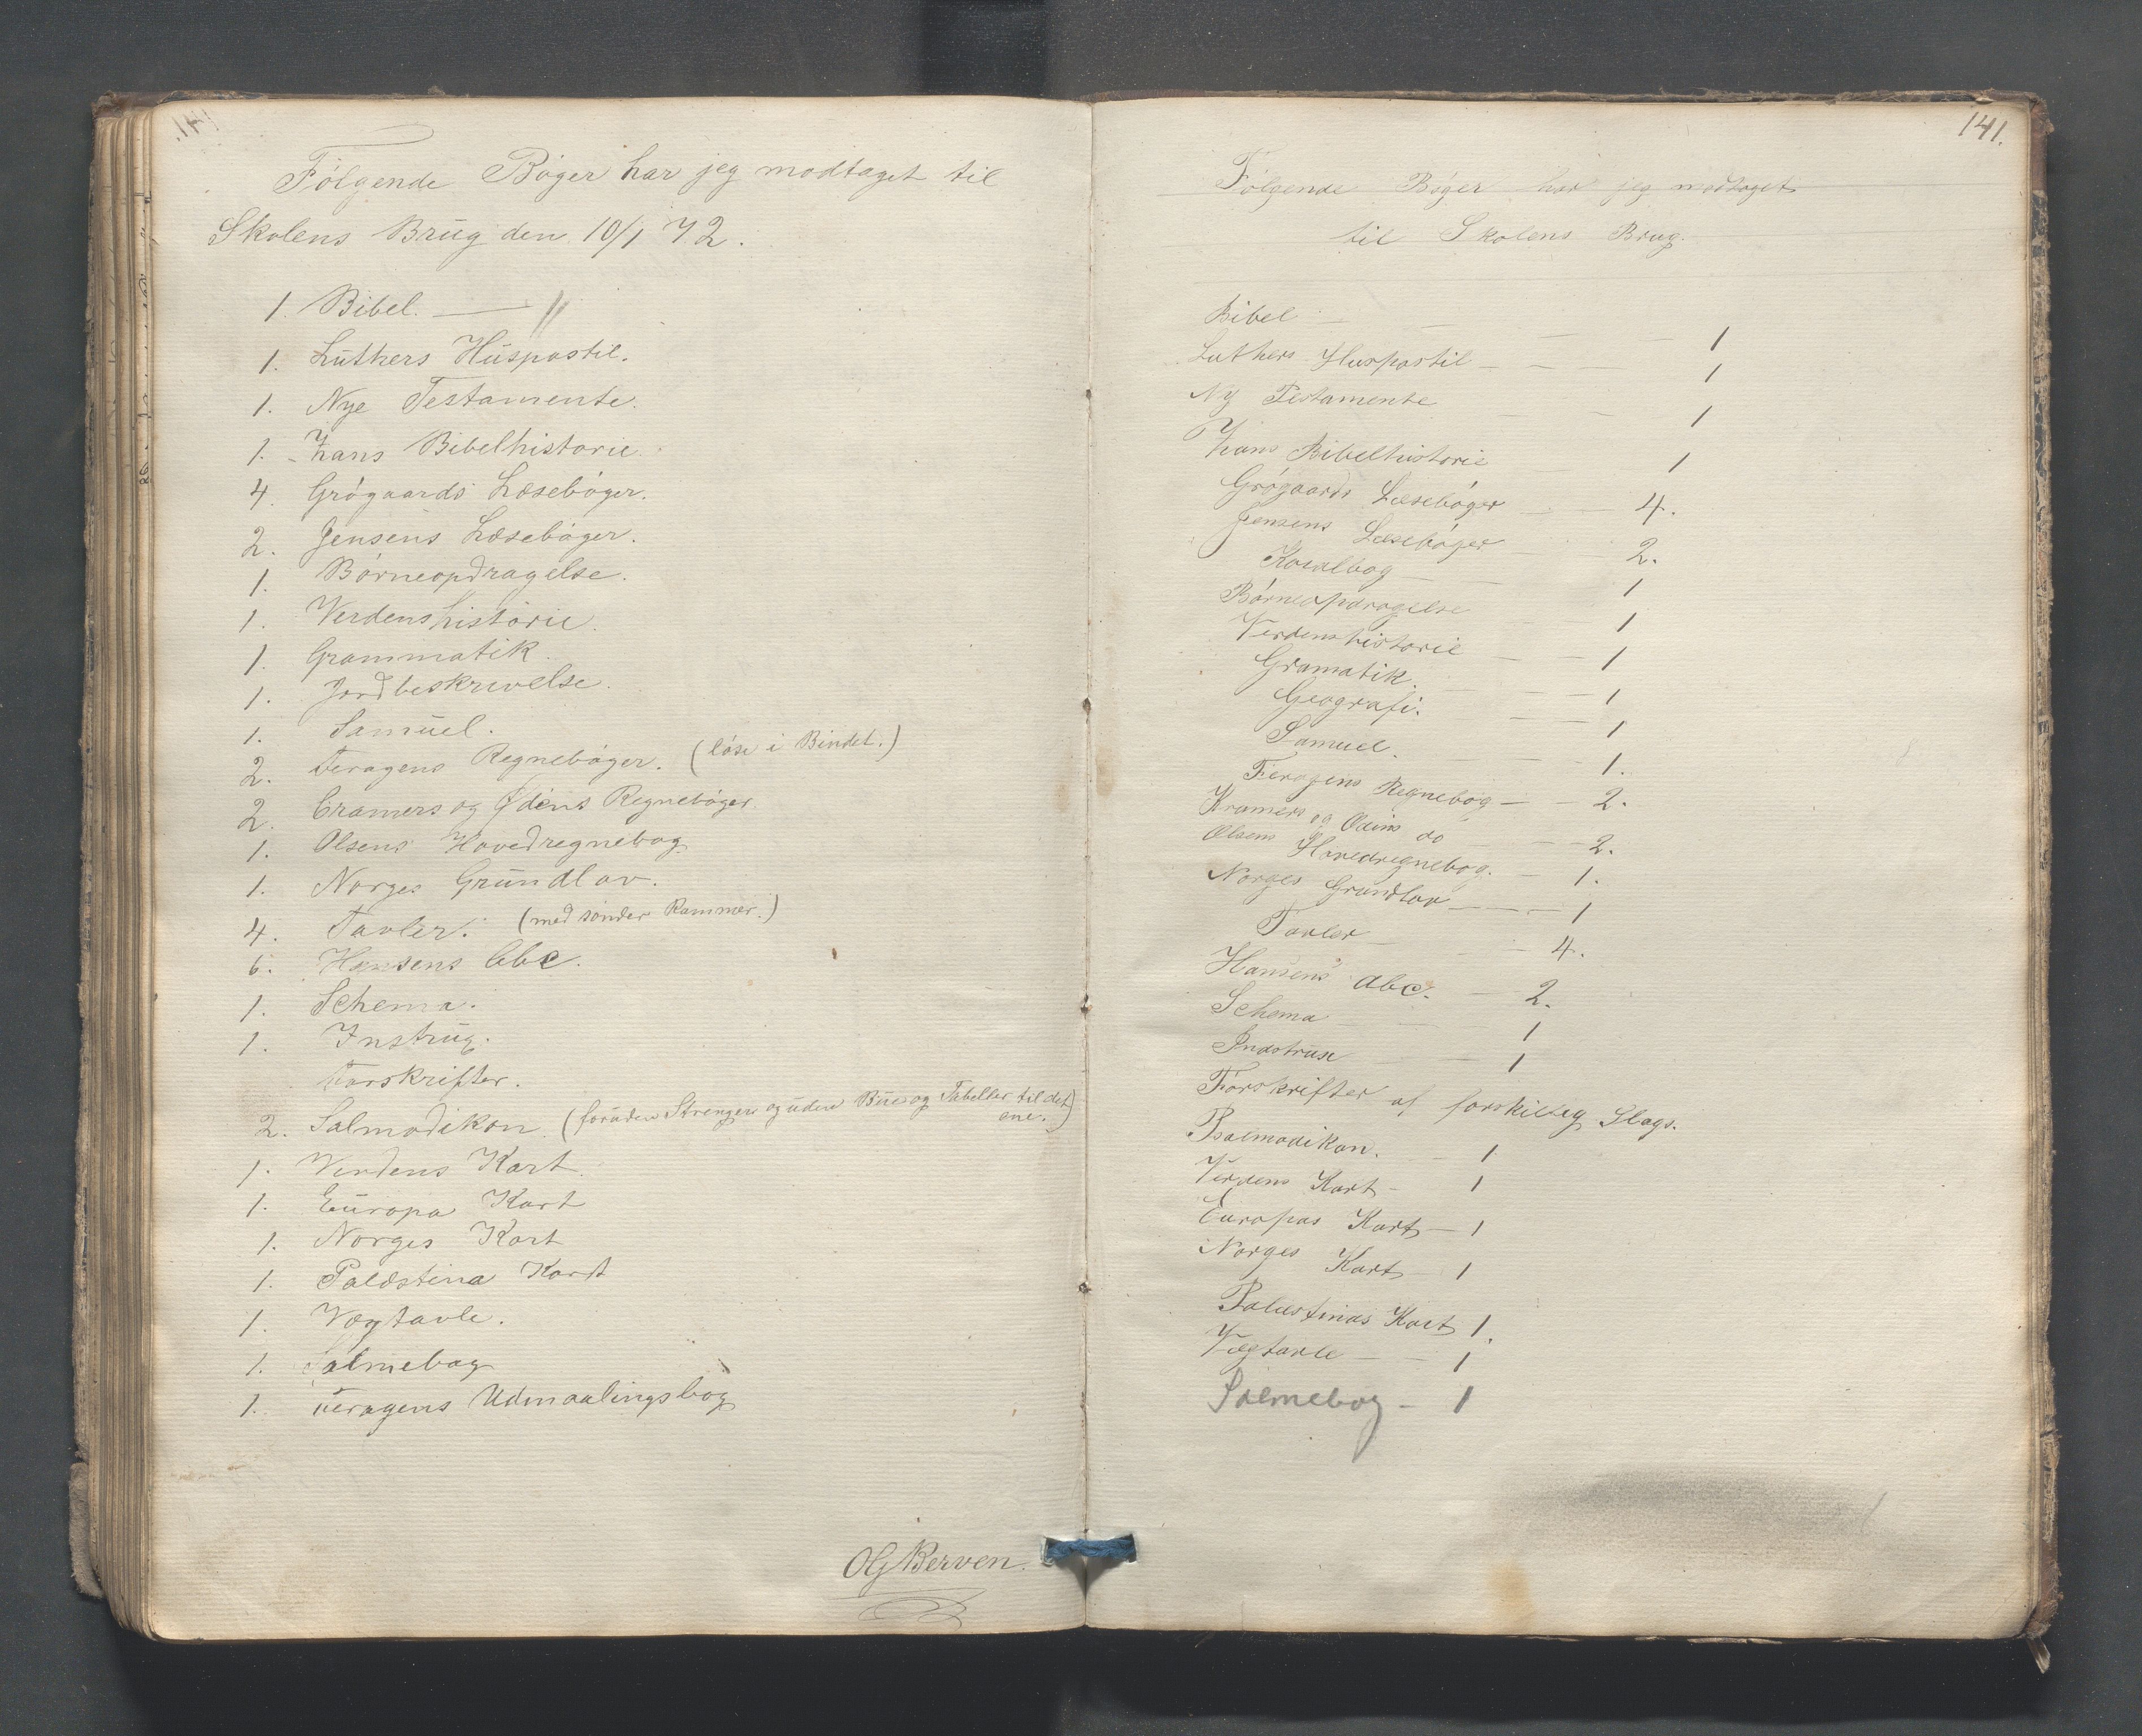 Følgende Bøger har jeg modtaget til
Skolens Brug den 10/1 72.
1. Bibel. — "
1. Luthers Huspostil.
1. Nye Testamente.
1. Zhans Bibelhistorie.
4. Grøgaards Læsebøger.
2. Jensens Læsebøger.
1. Børneopdragelse.
1. Verdenshistorie.
1. Grammatik.
1. Jordbeskrivelse.
1. Samuel.
2. Feragens Regnebøger. (løse i Bindet.)
2. Cramers og Ødéns Regnebøger
1. Olsens Hovedregnebog
1. Norges Grundlov.
4. Tavler. (med sønder Rammer.)
6. Hansens Abc.
1. Schema.
1. Instrug.
Forskrifter.
2. Salmodikon. (foruden Strenger og uden Bue og Tabeller til det
ene.)
1. Verdens Kart.
1. Europa Kart
1. Norges Kart
1. Palæstina Kart
1. Vægtavle.
1. Salmebog
1. Feragens Udmaalingsbog
OGBerven.
141.
Følgende Bøger har jeg modtaget
til Skolens Brug.
Bibel — — — — 1
Luthers Huspostil — — — 1
Ny Testamente — — 1
Zhans Bibelhistorie — — 1
Grøgaards Læsebøger — — 4.
Jensens Læsebøger — — 2.
Koralbog — — 1
Børneopdragelse — — 1
Verdenshistorie — — 1
Gramatik. — — — 1
Geografi. — — 1
Samuel. — — — 1.
Feragens Regnebog — — 2.
Kramers og Ødins do — — 2.
Olsens Hovedregnebog. — 1.
Norges Grundlov — — — 1
Tavler — — — 4.
Hansens Abc. — 2.
Schema — — — 1
Instruse — — 1
Forskrifter af forskillig Slags.
Psalmodikon. — 1
Verdens Kart — 1
Europas Kart — 1
Norges Kart — 1
Palæstinas Kart 1.
Vægtavle — — 1
Salmebog — 1